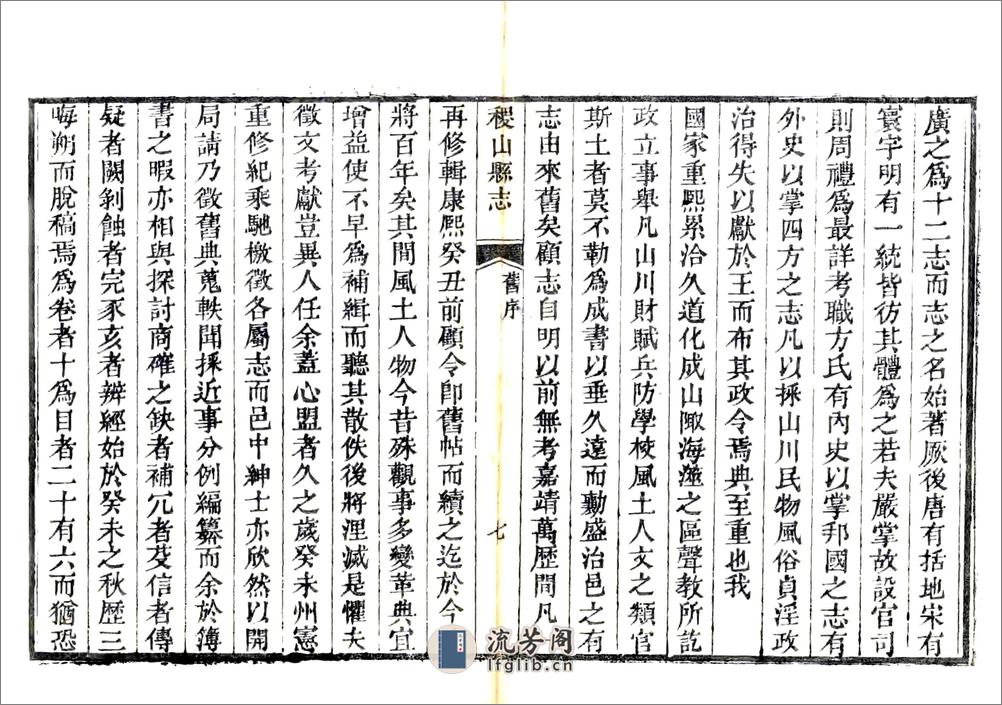 廣之爲十二志而志之名始著厥後唐有括地宋有
寰宇明有一統皆彷其體爲之若夫嚴掌故設官司
則周禮爲最詳考職方氏有內史以掌邦國之志有
外史以掌四方之志凡以採山川民物風俗貞淫政
治得失以獻於王而布其政令焉典至重也我
國家重熙累洽久道化成山陬海澨之區聲教所訖
政立事舉凡山川財賦兵防學校風土人文之類官
斯土者莫不勒爲成書以垂久遠而勷盛治邑之有
志由來舊矣顧志自明以前無考嘉靖萬歷間凡
稷山縣志 舊序 七
再修輯康熙癸丑前顧令卽舊帖而續之迄於今
將百年矣其間風土人物今昔殊觀事多變革典宜
增益使不早爲補緝而聽其散佚後將湮滅是懼夫
徵文考獻豈異人任余蓋心盟者久之歲癸未州憲
重修紀乘馳檄徵各屬志而邑中紳士亦欣然以開
局請乃徵舊典蒐軼聞採近事分例編纂而余於簿
書之暇亦相與探討商確之缺者補冗者芟信者傳
疑者闕剝蝕者完豕亥者辨經始於癸未之秋歷三
晦朔而脫稿焉爲卷者十爲目者二十有六而猶恐
流芳阁
lfglib.cn